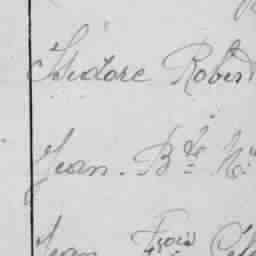 Isidore Robert
Jean. Bte
Jean Frois